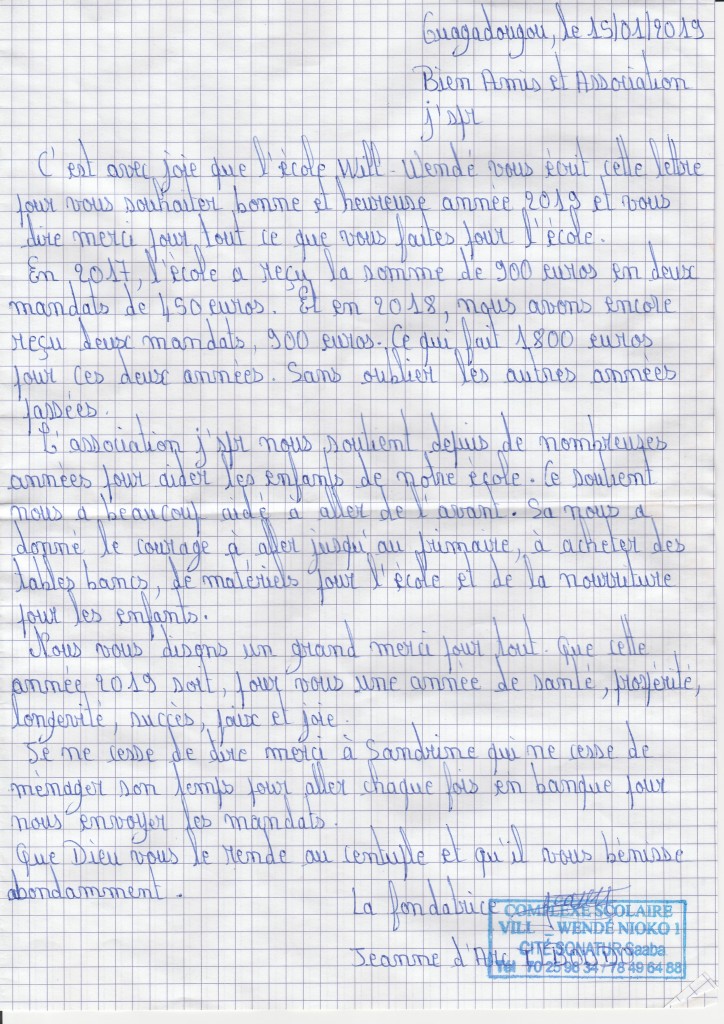 Ouagadougou, le 15/01/2019
Bien Amis et Association
j'spr
C'est avec joie que l'école Will-Wendé vous écrit cette lettre
pour vous souhaiter bonne et heureuse année 2019 et vous
dire merci pour tout ce que vous faites pour l'école.
En 2017, l'école a reçu la somme de 900 euros en deux
mandats de 450 euros. Et en 2018, nous avons encore
reçu deux mandats, 900 euros. Ce qui fait 1800 euros
pour ces deux années. Sans oublier les autres années
passées.
L'association j'spr nous soutient depuis de nombreuses
années pour aider les enfants de notre école. Ce soutient
nous a beaucoup aidé à aller de l'avant. Sa nous a
donné le courage à aller jusqu'au primaire, à acheter des
tables bancs, de matériels pour l'école et de la nourriture
pour les enfants.
Nous vous disons un grand merci pour tout. Que cette
année 2019 soit, pour vous une année de santé, prospérité,
longevité, succès, paix et joie.
Je ne cesse de dire merci à Sandrine qui ne cesse de
ménager son temps pour aller chaque fois en banque pour
nous envoyer les mandats.
Que Dieu vous le rende au centuple et qu'il vous bénisse
abondamment.
La fondatrice
COMPLEXE SCOLAIRE
VILL - WENDÉ NIOKO 1
CITÉ SONATUR Saaba
Tél 70 25 98 34 / 78 49 64 88
Jeanne d'Arc